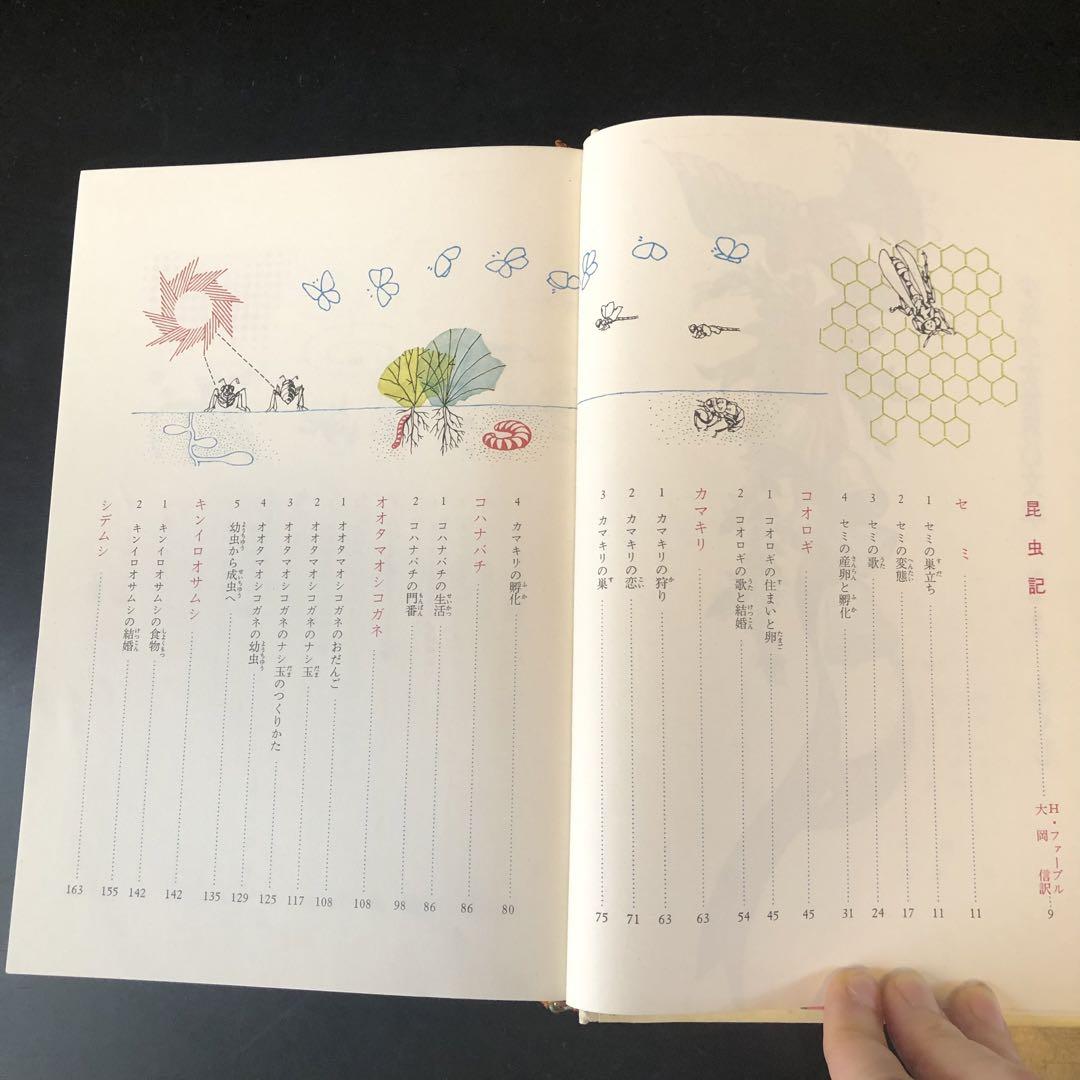 昆虫記 H・ファーブル 大岡信訳 9
セミ 11
1 セミの巣立ち 11
2 セミの変態 17
3 セミの歌 24
4 セミの産卵と孵化 31
コオロギ 45
1 コオロギの住まいと卵 45
2 コオロギの歌と結婚 54
カマキリ 63
1 カマキリの狩り 63
2 カマキリの恋 71
3 カマキリの巣 75
4 カマキリの孵化 80
コハナバチ 86
1 コハナバチの生活 86
2 コハナバチの門番 98
オオタマオシコガネ 108
1 オオタマオシコガネのおだんご 108
2 オオタマオシコガネのナシ玉 117
3 オオタマオシコガネのナシ玉のつくりかた 125
4 オオタマオシコガネの幼虫 129
5 幼虫から成虫へ 135
キンイロオサムシ 142
1 キンイロオサムシの食物 142
2 キンイロオサムシの結婚 155
シデムシ 163